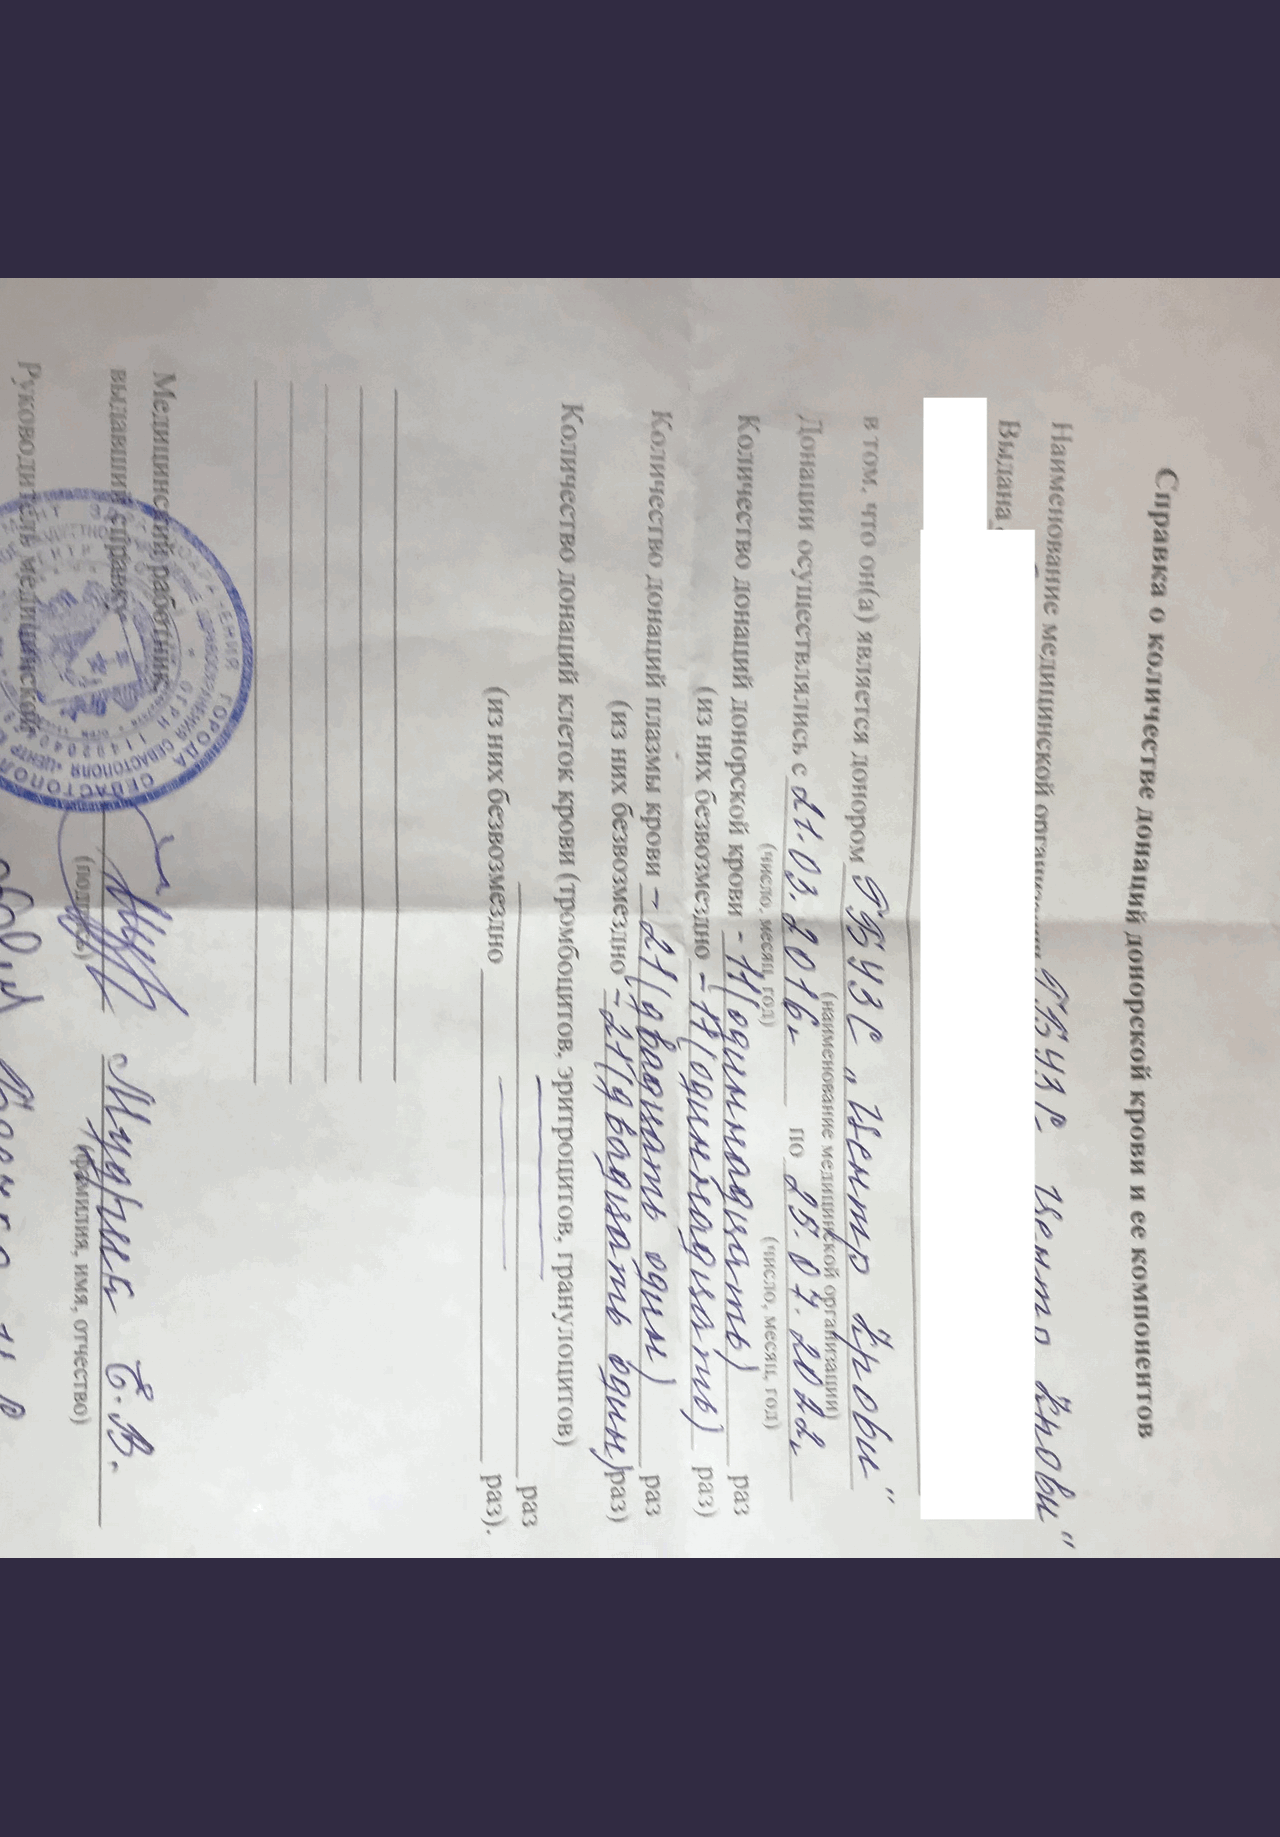 Справка о количестве донаций донорской крови и ее компонентов
Наименование медицинской организации ГБУЗС "Центр Крови"
Выдана
в том, что он(а) является донором ГБУЗС „Центр Крови"
(наименование медицинской организации)
Донации осуществлялись с 21.03.2016. по 25.07.2022.
(число, месяц, год) (число, месяц, год)
Количество донаций донорской крови - 11(одиннадцать) раз
(из них безвозмездно - 11(одиннадцать) раз)
Количество донаций плазмы крови - 21(двадцать один) раз
(из них безвозмездно - 21(двадцать один) раз)
Количество донаций клеток крови (тромбоцитов, эритроцитов, гранулоцитов)
раз
(из них безвозмездно раз).
Медицинский работник,
выдавший справку Е.В.
(подпись) (фамилия, имя, отчество)
Руководитель медицинской
ЗДРАВООХРАНЕНИЯ ГОРОДА СЕВАСТОПОЛ
ЗДРАВООХРАНЕНИЯ СЕВАСТОПОЛЯ «ЦЕНТР
ОГРН 1149204